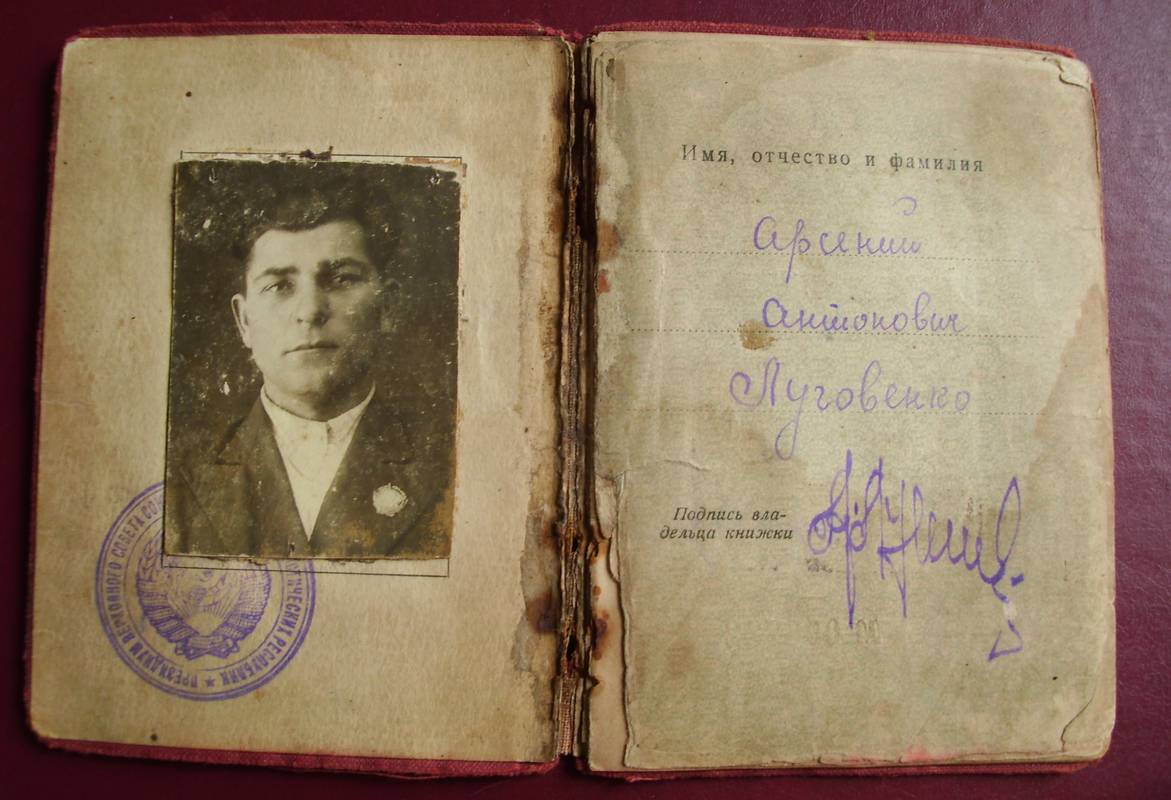 ПРЕЗИДИУМ ВЕРХОВНОГО СОВЕТА
РЕСПУБЛИК
Имя, отчество и фамилия
Арсений
Антонович
Луговенко
Подпись вла-
дельца книжки